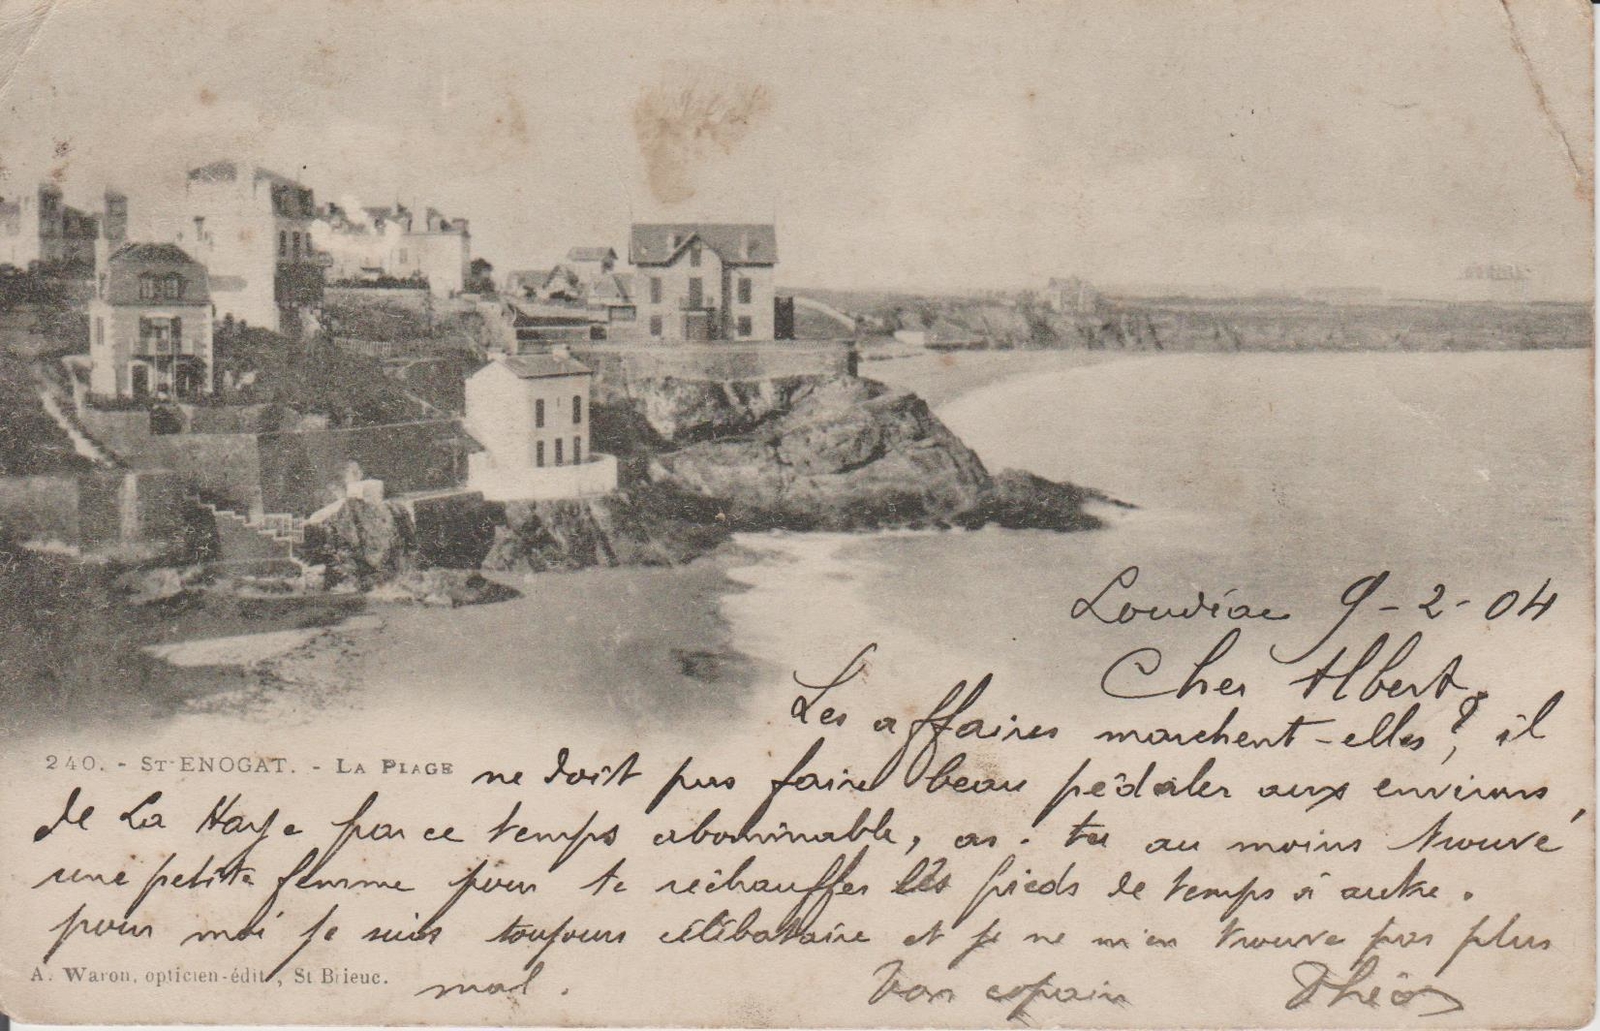 Loudéac 9-2-04
Cher Albert,
Les affaires marchent-elles?, il
240. - ST ENOGAT. - LA PLAGE
ne doit pas faire beau pédaler aux environs
de La Haye par ce temps abominable, as-tu au moins trouvé
une petite femme pour te réchauffer les pieds de temps à autre.
pour moi je suis toujours célibataire et je ne m'en trouve pas plus
A. Waron, opticien-édit., St Brieuc.
mal. Ton copain Théo